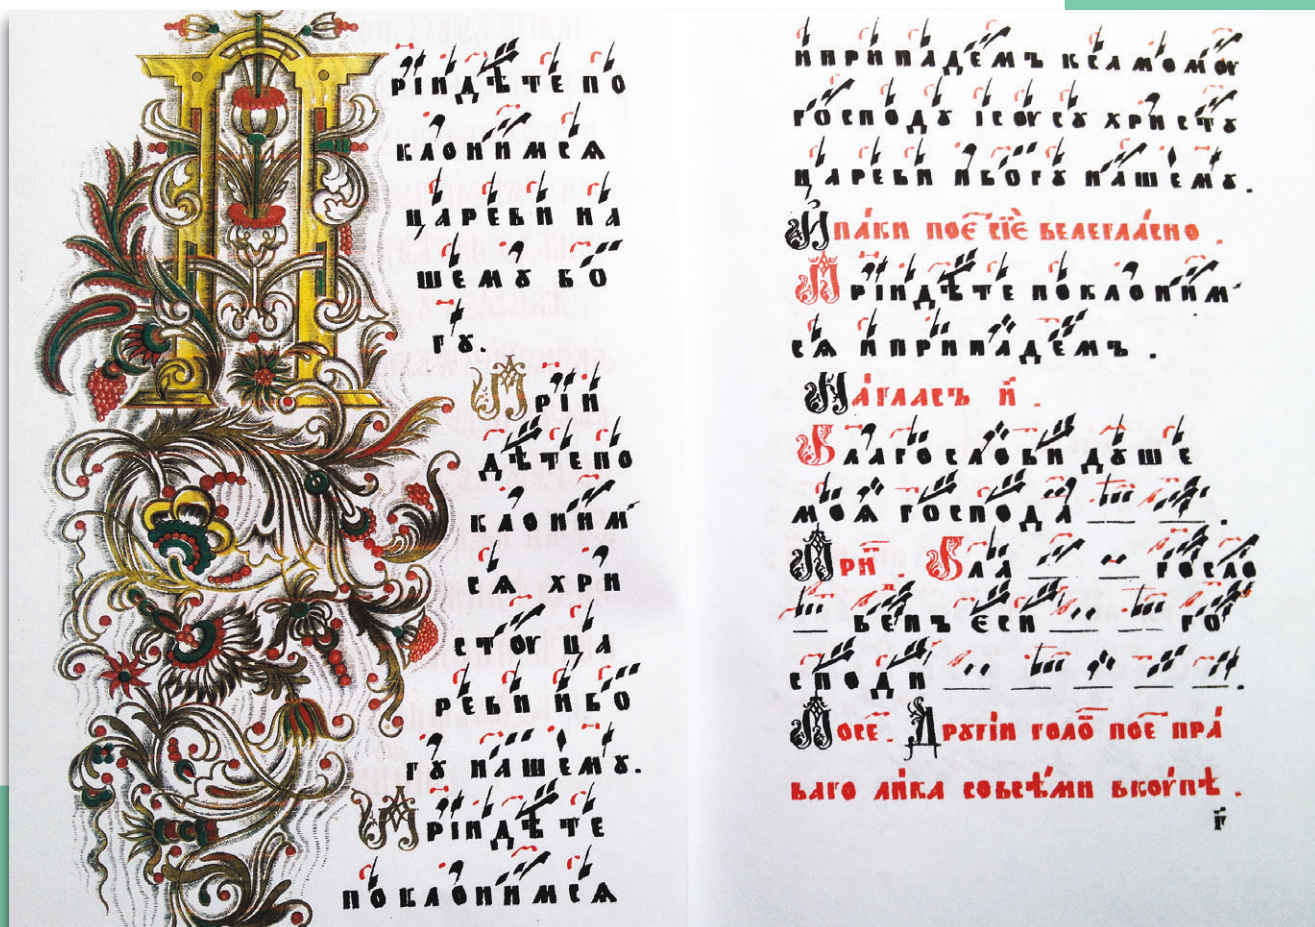 П
РІИДѢТЕ ПО
КЛОНИМСѦ
ЦАРЕВИ НА
ШЕМꙊ БО
ГꙊ.
ПРІИ
ДѢТЕ ПО
КЛОНИМ
СѦ ХРИ
СТОУ ЦА
РЕВИ ИБО
ГꙊ НАШЕМꙊ.
ПРІИДѢТЕ
ПОКЛОНИМСѦ
ИПРИПАДЕМЪ КСАМОМОУ
ГОСПОДꙊ ІСОУСꙊ ХРИСТꙊ
ЦАРЕВИ ИБОГꙊ НАШЕМꙊ.
И҆ПА́КИ ПОЕ҇ СІЕ҇ ВЕЛЕГЛА́СНО.
ПРІИДѢТЕ ПОКЛОНИМ
СѦ ИПРИПАДЕМЪ.
НА́ГЛАСЪ И҃.
БЛАГОСЛОВИ ДꙊШЕ
МОѦ ГОСПОДА
ПРИ҇. БЛА ГОСЛО
ВЕНЪ ЕСИ ГО
СПОДИ
ПОСЕ. ДРꙊГІИ ГОЛО҇ ПОЕ҇ ПРА́
ВАГО ЛИ́КА СОВСѢ́МИ ВКОУ́ПѢ.